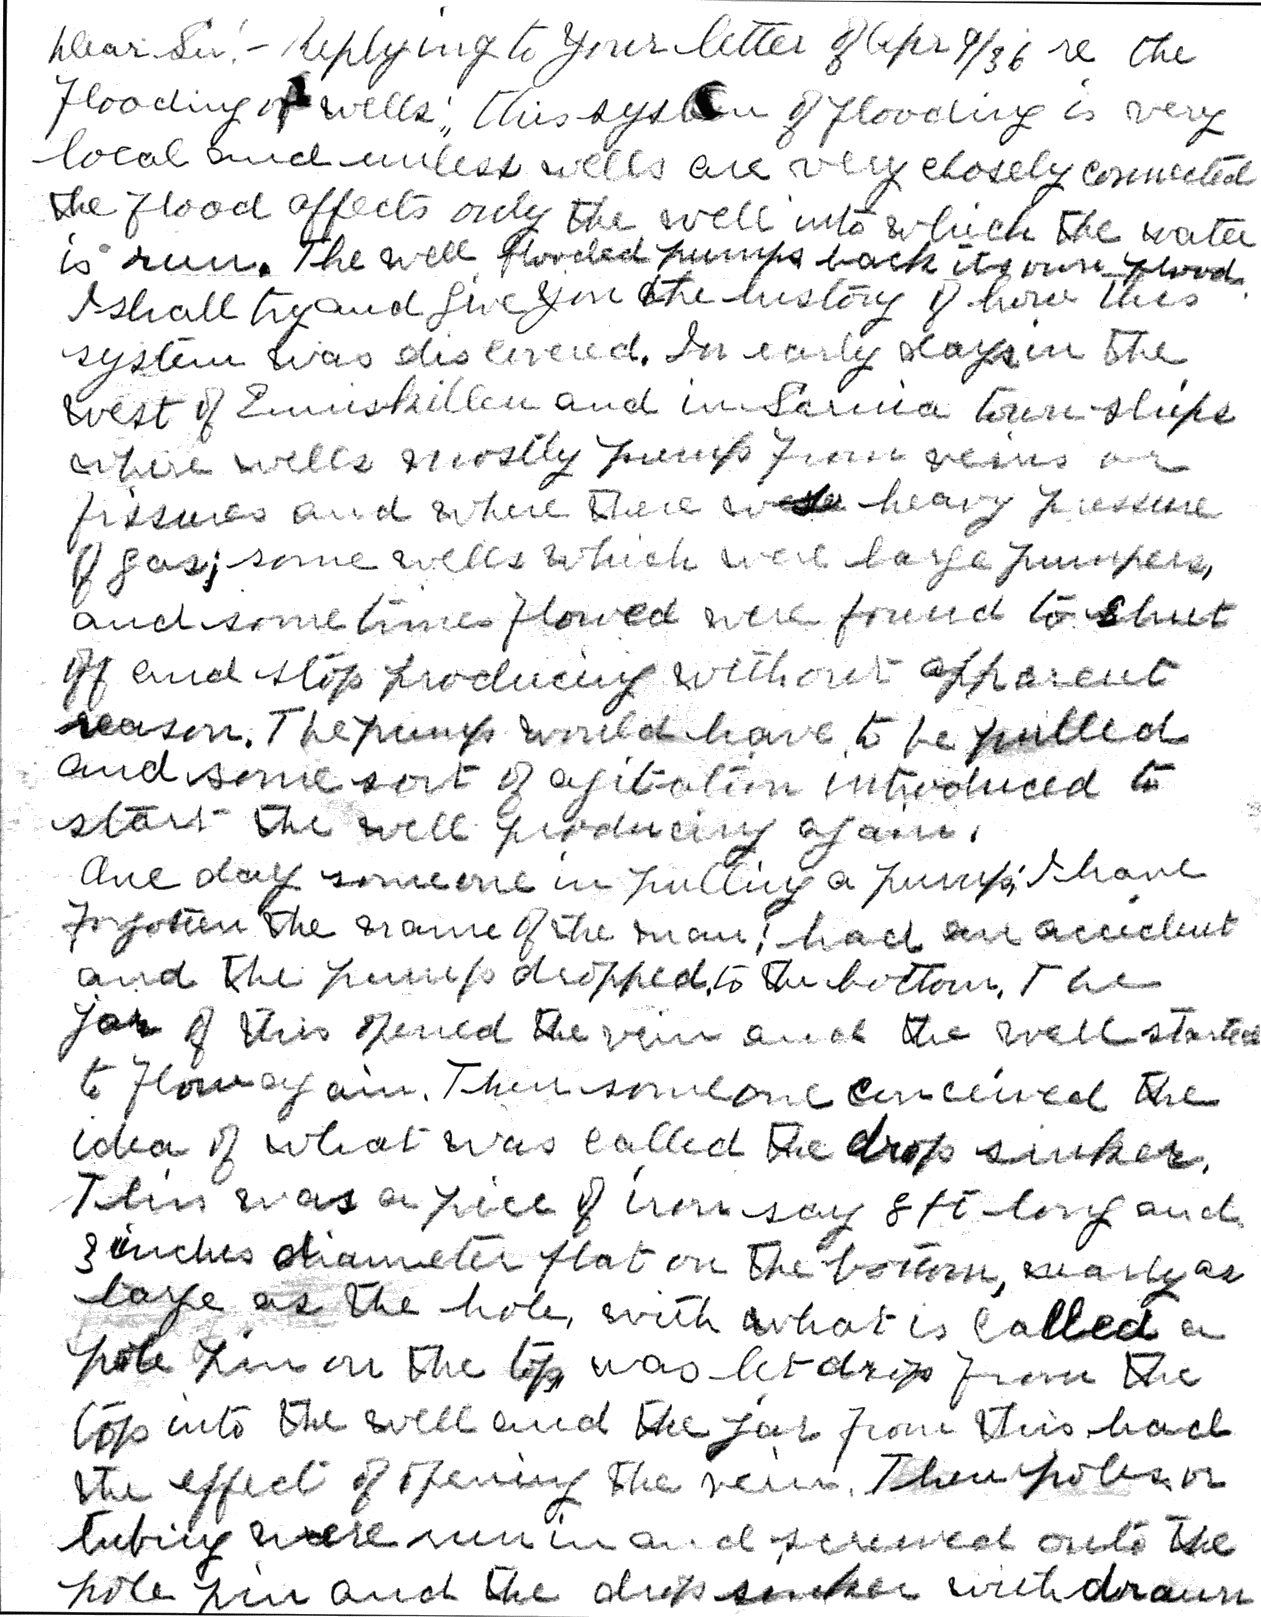 Dear Sir:- Replying to your letter of Apr 9/36 re the
flooding of wells; this system of flooding is very
local and unless wells are very closely connected
the flood affects only the well into which the water
is run. The well flooded pumps back its own flood.
I shall try and give you the history of how this
system was discovered. In early days in the
west of Enniskillen and in Sarnia townships
where wells mostly pump from veins or
fissures and where there was heavy pressure
of gas; some wells which were large pumpers,
and sometimes flowed were found to shut
off and stop producing without apparent
reason. The pump would have to be pulled
and some sort of agitation introduced to
start the well producing again.
One day someone in pulling a pump; I have
forgotten the name of the man; had an accident
and the pump dropped to the bottom. The
jar of this opened the vein and the well started
to flow again. Then someone conceived the
idea of what was called the drop sinker.
This was a piece of iron say 8 ft long and
3 inches diameter flat on the bottom, nearly as
large as the hole, with what is called a
pole pin on the top, was let drop from the
top into the well and the jar from this had
the effect of opening the vein. Then poles or
tubing were run in and screwed onto the
pole pin and the drop sinker withdrawn